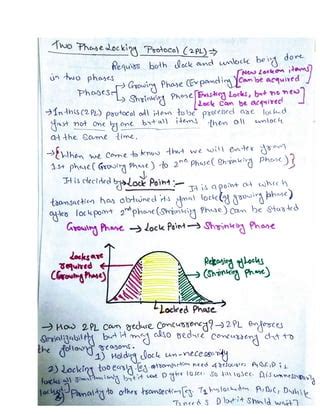 Two Phase Locking Protocol (2PL) :→
Require both lock and unlock being done
in two phases
Phases → Growing Phase (Expanding) [New Lock on items can be acquired]
→ Shrinking Phase [Existing Locks, but no new Lock can be acquired]
→ In this (2PL) protocol all item to be proceed are locked
first not one by one but all items then all unlock
at the same time.
→ { When we come to know that we will enter from
1st phase (Growing Phase) to 2nd phase (Shrinking Phase) }
It is decided by → Lock Point :- It is a point at which
transaction has obtained its final lock (of growing phase)
after lock point 2nd phase (Shrinking Phase) can be started
Growing Phase → Lock Point → Shrinking Phase
Locks are
acquired
(Growing Phase)
Releasing of Locks
(Shrinking Phase)
Locked Phase
→ How 2PL can reduce concurrency? → 2PL enforces
Serializability but it may also reduce concurrency due to
the following reasons.
1) Holding lock unnecessarily
2) Locking too early
locked
3) Penality to other transaction